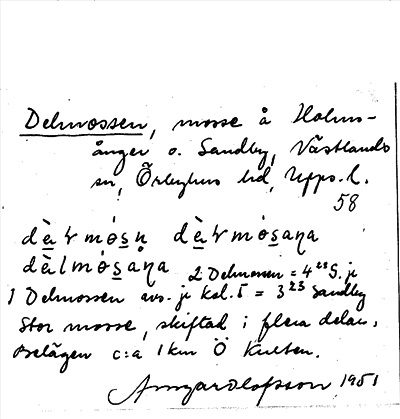 Delmossen, mosse å Holms-
ånger o. Sandby, Västlands
sn, Örbyhus hd, Upps. l.
58
dèa̱ɽ mó̀s̱ṇ dèa̱ɽmós̱aṇa
dèa̱lmós̱aṇa 2 Delmossen = 4 S. je
1 Delmossen avs. je kal. 5 = 3 Sandby
Stor mosse, skiftad i flera delar,
Belägen c:a 1 km Ö Kulten.
Olofsson 1951